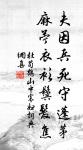 夫因兵死守蓬茅
麻苧衣衫鬢髮焦
杜荀鶴山中寡婦詞典
網